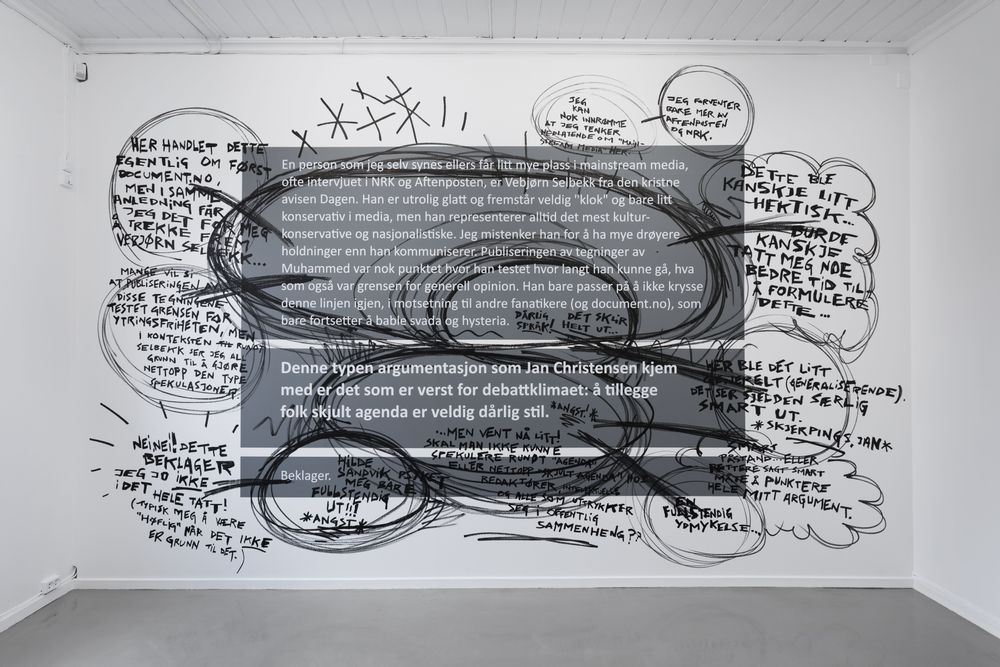 HER HANDLET DETTE
EGENTLIG OM FØRST
DOCUMENT.NO,
MEN I SAMME
ANLEDNING FÅR
JEG DET FOR
TREKKE MEG
VEBJØRN SEL KK...
MANGE VIL SI
AT PUBLISERINGEN AV
DISSE TEGNINGENE
TESTET GRENSEN FOR
YTRINGSFRIHETEN, MEN
I KONTEKSTEN RUNDT
SELBEKK SER JEG ALL
GRUNN TIL Å GJØRE
NETTOPP DEN TYPE
SPEKULASJONER
NEINEI! DETTE
BEKLAGER
JEG JO IKKE
I DET HELE TATT!
(TYPISK MEG Å VÆRE
"HØFLIG" NÅR DET IKKE
ER GRUNN TIL DET.)
JEG
KAN
NOK INNRØMME
AT JEG TENKER
NEDLATENDE OM "MAIN-
STREAM MEDIA" HER.
JEG FORVENTER
BARE MER AV
AFTENPOSTEN
OG NRK.
En person som jeg selv synes ellers får litt mye plass i mainstream media,
ofte intervjuet i NRK og Aftenposten, er Vebjørn Selbekk fra den kristne
avisen Dagen. Han er utrolig glatt og fremstår veldig "klok" og bare litt
konservativ i media, men han representerer alltid det mest kultur-
konservative og nasjonalistiske. Jeg mistenker han for å ha mye drøyere
holdninger enn han kommuniserer. Publiseringen av tegninger av
Muhammed var nok punktet hvor han testet hvor langt han kunne gå, hva
som også var grensen for generell opinion. Han bare passer på å ikke krysse
denne linjen igjen, i motsetning til andre fanatikere (og document.no), som
bare fortsetter å bable svada og hysteria.
DÅRLIG SPRÅK!
DET SKLIR HELT UT...
Denne typen argumentasjon som Jan Christensen kjem
med er det som er verst for debattklimaet: å tillegge
folk skjult agenda er veldig dårlig stil.
*ANGST!*
...MEN VENT NÅ LITT!
SKAL MAN IKKE KUNNE
SPEKULERE RUNDT "AGENDA"
ELLER NETTOPP "SKJULT AGENDA" HOS
REDAKTØRER,
OG ALLE SOM UTRYKKER
SEG I OFFENTLIG
SAMMENHENG??
Beklager.
HILDE
SANDVIK PSYKET
MEG BARE
FULLSTENDIG
UT!!!
*ANGST*
DETTE BLE
KANSKJE LITT
HEKTISK...
BURDE
KANSKJE
TATT MEG NOE
BEDRE TID TIL
Å FORMULERE
DETTE...
HER BLE DET LITT
GENERELT (GENERALISERENDE).
DET SER SJELDEN SÆRLIG
SMART UT.
*SKJERPINGS, JAN*
SMART
PÅSTAND... ELLER
RETTERE SAGT SMART
MÅTE Å PUNKTERE
HELE MITT ARGUMENT.
EN
FULLSTENDIG
YDMYKELSE...